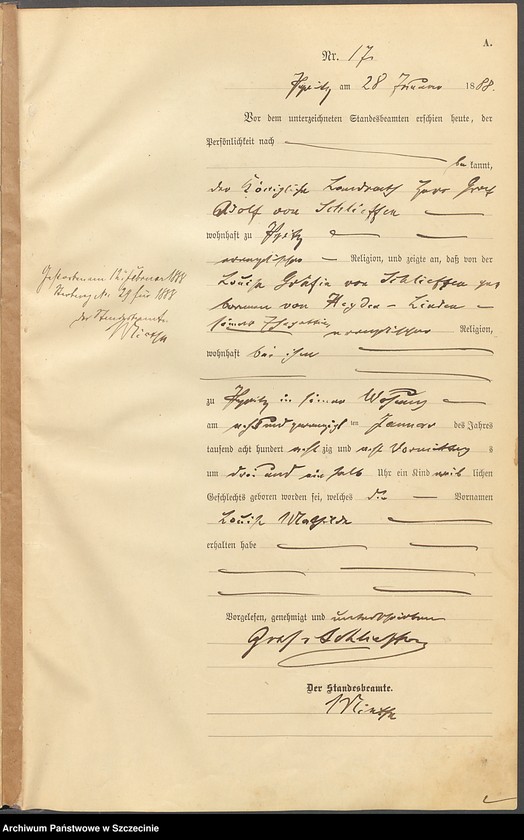 A.
Nr. 17.
Pyritz am 28 Januar 1888.
Vor dem unterzeichneten Standesbeamten erschien heute, der
Persönlichkeit nach
bekannt,
der Königliche Landrath Herr Graf
Adolf von Schlieffen
wohnhaft zu Pyritz
evangelischer Religion, und zeigte an, daß von der
Louise Gräfin von Schlieffen ge
borenen von Heyden-Linden
seiner Ehegattin evangelischer Religion,
wohnhaft bei ihm
zu Pyritz in seiner Wohnung
am acht und zwanzigsten Januar des Jahres
tausend acht hundert achtzig und acht Vormittags
um drei und ein halb Uhr ein Kind weiblichen
Geschlechts geboren worden sei, welches die Vornamen
Louise Mathilde
erhalten habe
Vorgelesen, genehmigt und unterschrieben
Graf v Schlieffen
Der Standesbeamte.
Gestorben am 12 Februar 1888
Sterbereg. Nr. 29 für 1888
Der Standesbeamte
Archiwum Państwowe w Szczecinie